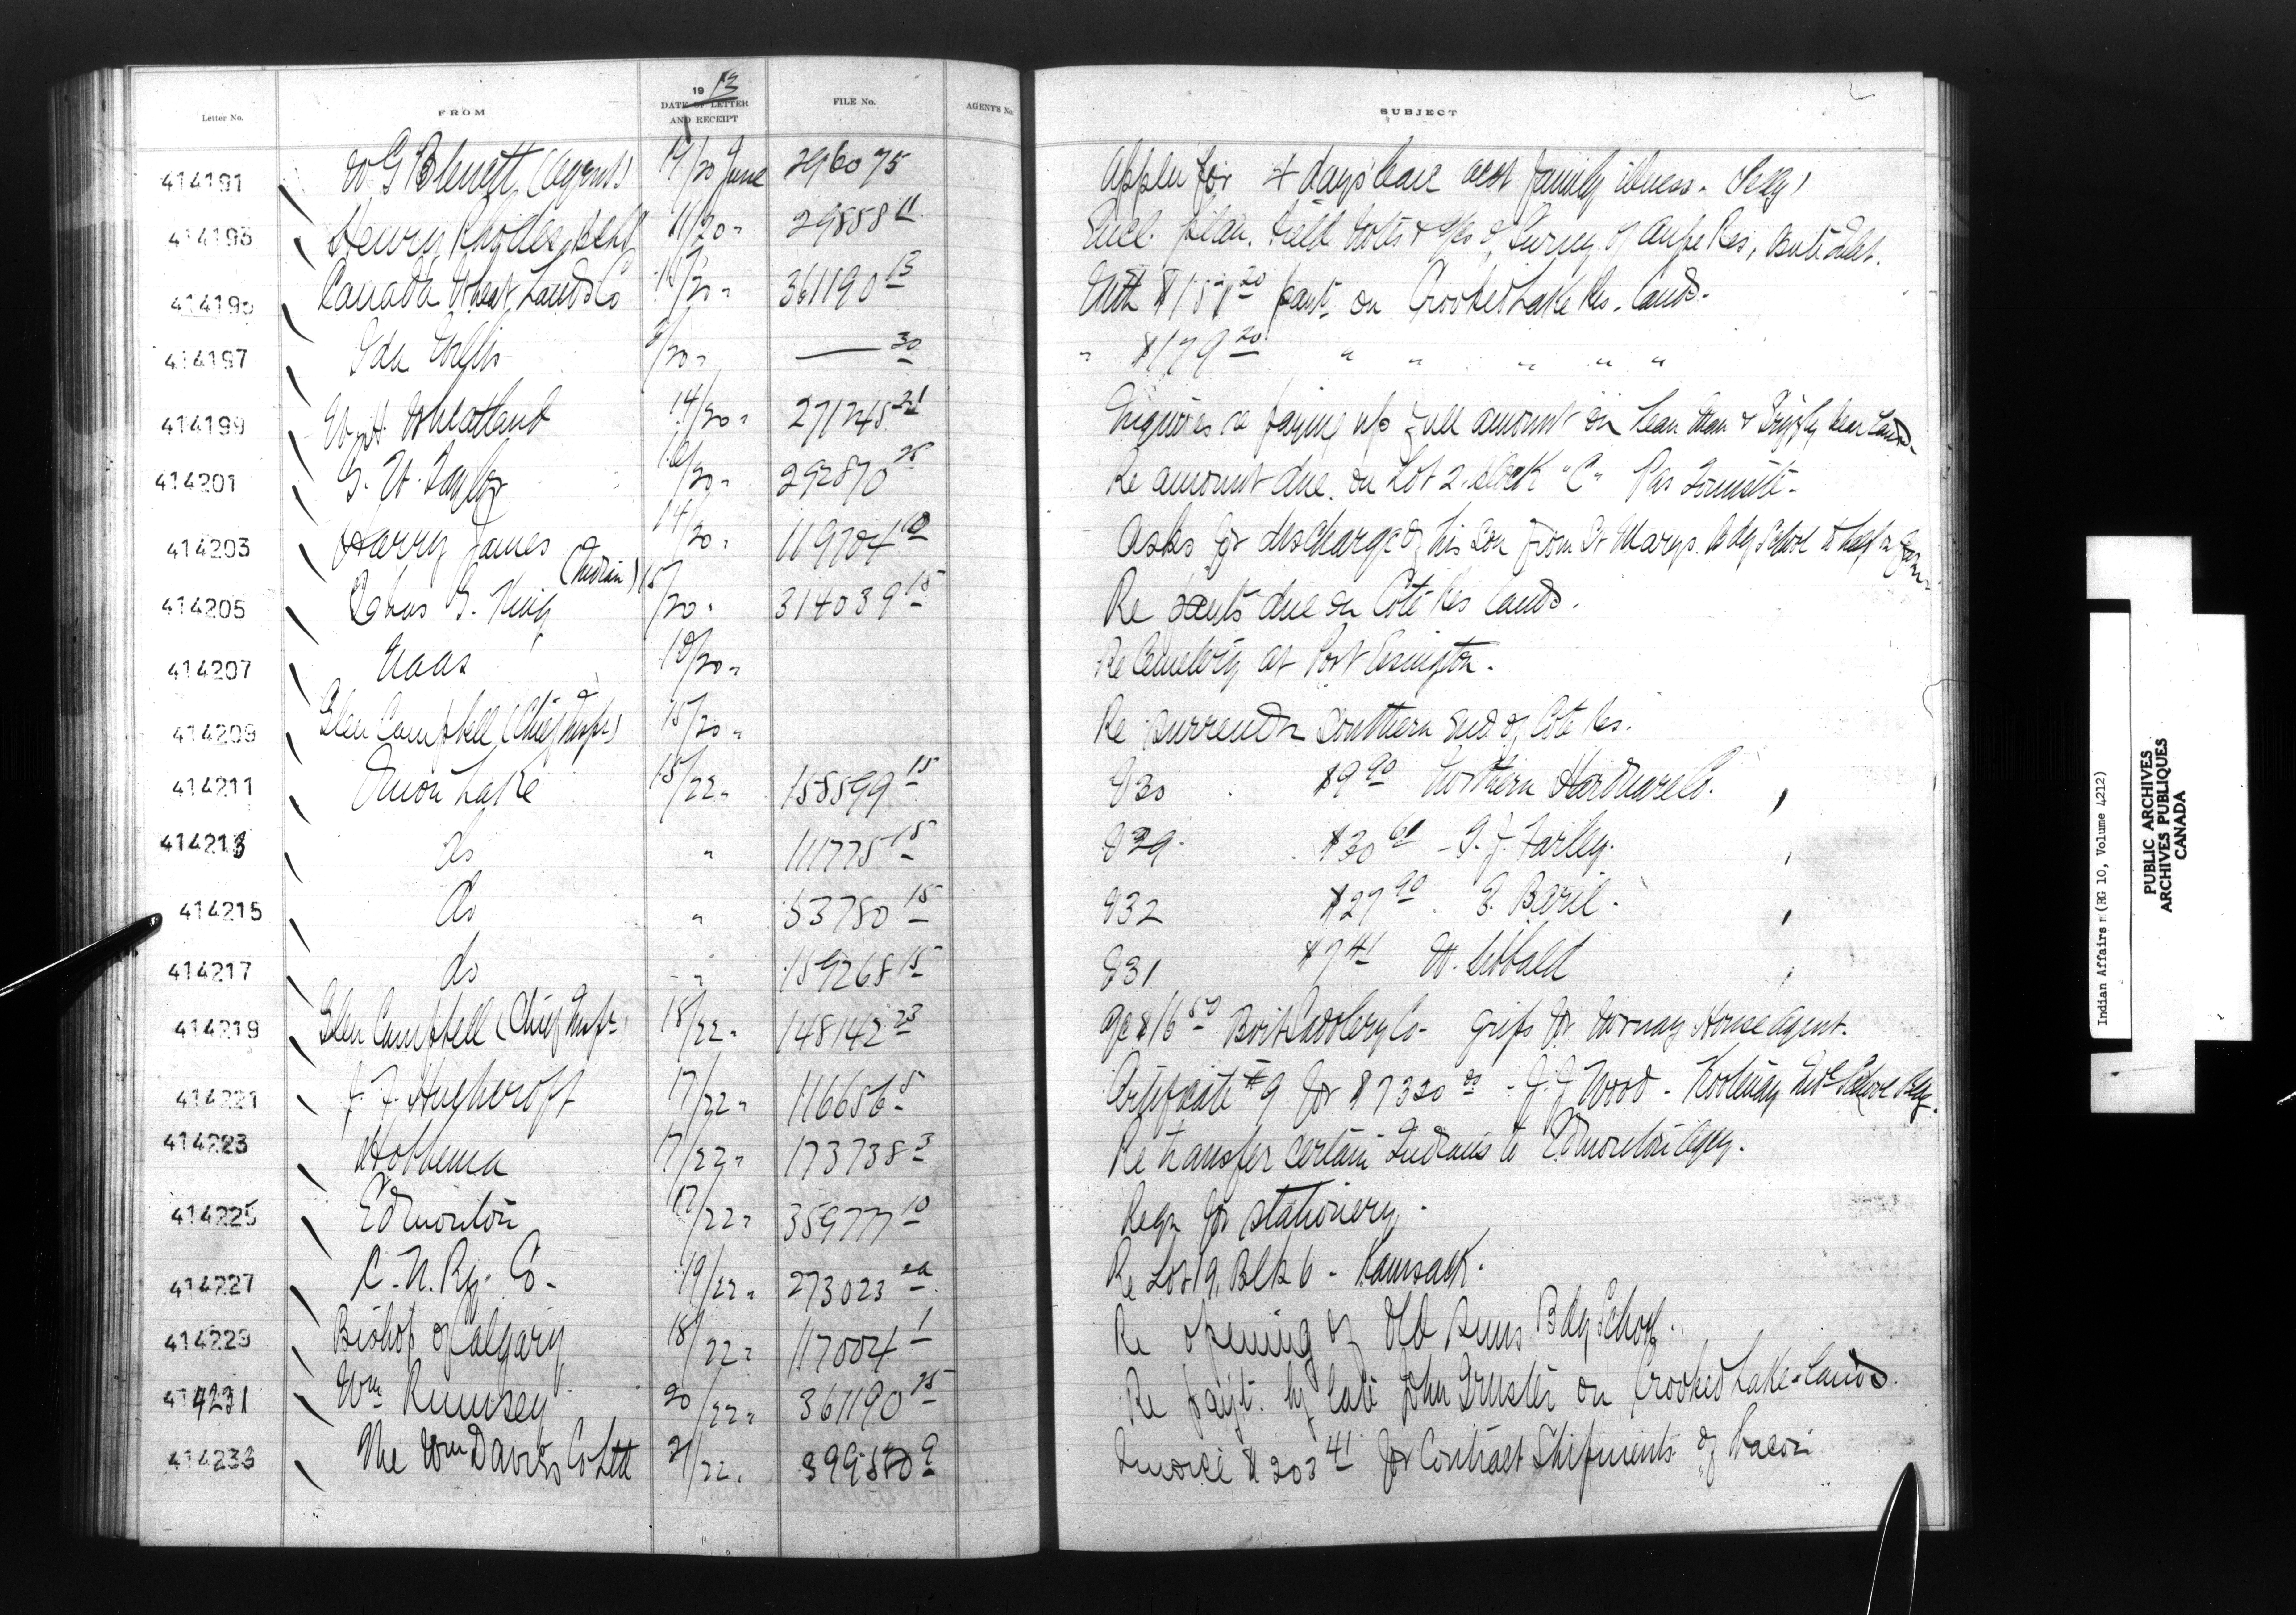 1913
Letter No. FROM DATE OF LETTER AND RECEIPT FILE No. AGENT'S No. SUBJECT
414191 W G (Agent) 19/20 June for 4 days leave acct family illness.
414193 Henry 11/20 " 29858 11 Encl. plan, field notes & of Survey of Res,
414195 Canada Wheat Lands Co /20 " 361190 13 With on Crooked Lake Res. Lands.
414197 Ida /20 " — 30 " $179 20 " " " " "
414199 W. H. Wheatland 14/20 " 271245 21 Inquires re paying up full amount on Lean Man & Grizzly Bear Lands
414201 G. W. Taylor 16/20 " 292870 Re amount due on Lot 2, Block "C" Pas Townsite.
414203 Harry James (Indian) 14/20 " 119704 10 Asks for discharge of his son from St Marys Bdg School to help on farm
414205 G. King 15/20 " 314039 15 Re due on Coté Res Lands.
414207 Naas 10/20 " Re Cemetery at Port Essington.
414209 Glen Campbell (Chief Inspr) 15/20 " Re surrender Southern End of Cote Res.
414211 Onion Lake 15/22 " 158599 15 830 $9 90 Northern Hardware Co. "
414213 do " 111775 15 829 $30 60 - G. J. Farley. "
414215 do " 53780 15 832 $27 90 E. Beril. "
414217 do " 159268 15 831 $7 41 W. Sibbald "
414219 Glen Campbell (Chief Inspr) 18/22 " 148142 23 a/c $16 50 Co - grips for House Agent.
414221 J. F. Hughcroft 17/22 " 116656 5 Certificate #9 for $7320 00 - J. J. Wood - Kootenay Indl School Bldg.
414223 Hobbema 17/22 " 173738 3 Re transfer certain Indians to Edmonton Agcy.
414225 Edmonton 17/22 " 35977 10 Reqn for stationery.
414227 C. N. Ry. Co - 19/22 " 273023 2A Re Lot 19, Blk 6 - Kamsack.
414229 Bishop of Calgary 18/22 " 117004 1 Re opening of Old Suns Bdg School.
414231 Wm Rumsey 20/22 " 361190 25 Re payt. by late John on Crooked Lake Lands.
414233 The Wm Davies Co Ltd 21/22 " 9 Invoice $203 41 for Contract Shipments of Bacon
Indian Affairs (RG 10, Volume 4212)
PUBLIC ARCHIVES
ARCHIVES PUBLIQUES
CANADA